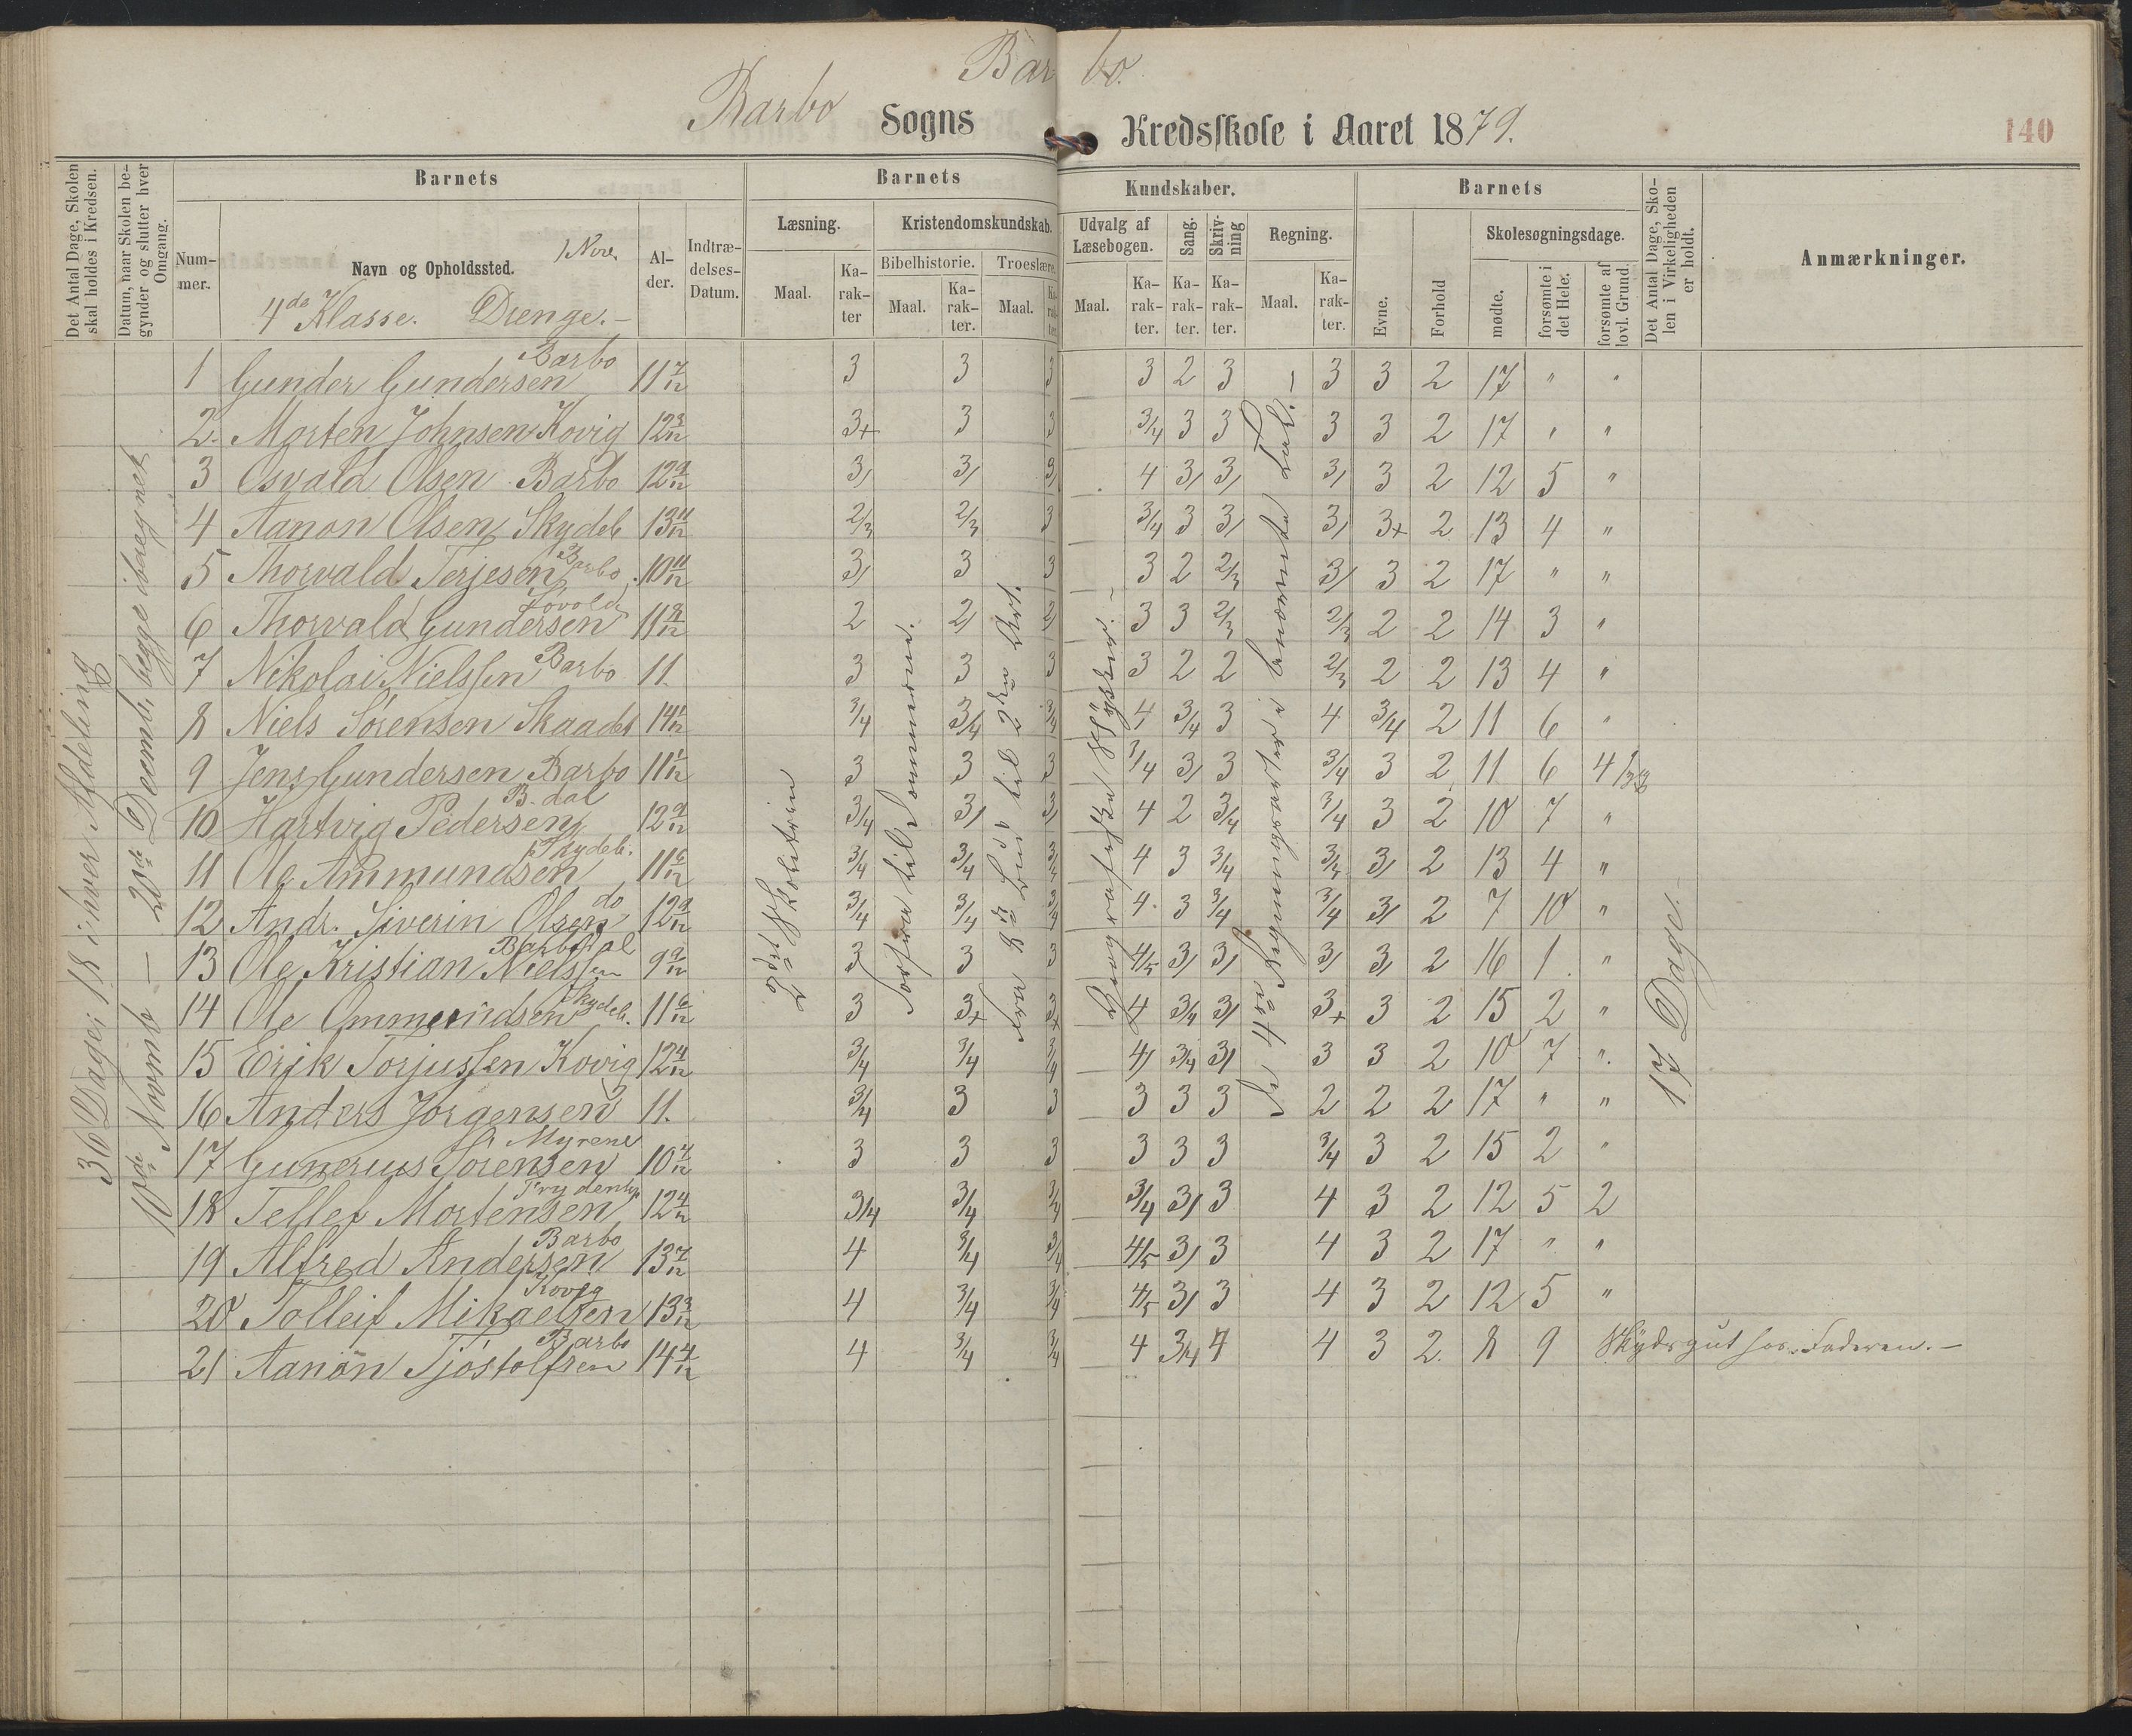 Barbo.
Barbo Sogns Kredsskole i Aaret 1879. 140
Det Antal Dage, Skolen skal holdes i Kredsen.
Datum, naar Skolen begynder og slutter hver Omgang.
Barnets Barnets Kundskaber. Barnets
Nummer. Navn og Opholdssted. 1 Nov. Alder. Indtrædelses-Datum.
Læsning. Maal. Karakter
Kristendomskundskab. Bibelhistorie. Maal. Karakter. Troeslære. Maal. Karakter.
Udvalg af Læsebogen. Maal. Karakter. Sang. Karakter. Skrivning Karakter. Regning. Maal. Karakter.
Evne. Forhold Skolesøgningsdage. mødte. forsømte i det Hele. forsømte af lovl. Grund.
Det Antal Dage, Skolen i Virkeligheden er holdt.
Anmærkninger.
4de Klasse. Drenge. –
36 Dage: 18 i hver Afdeling
10de Novemb – 20de Decemb, begge iberegnet
1 Gunder Gundersen Barbo 11 7/12 3 3 3 3 2 3 3 3 2 17 " "
2. Morten Johnsen Kovig 12 3/12 3+ 3 3 3/4 3 3 3 3 2 17 " "
3 Osvald Olsen Barbo 12 9/12 3/ 3/ 3/ 4 3/ 3/ 3/ 3 2 12 5 "
4 Aanon Olsen Skydeb 13 11/12 2/3 2/3 3 3/4 3 3/ 3/ 3+ 2 13 4 "
5 Thorvald Terjesen Barbo 10 11/12 3/ 3 3 3 2 2/3 3/ 3 2 17 " "
6 Thorvald Gundersen 11 8/12 2 2/ 2/ 3 3 2/3 2/3 2 2 14 3 "
7 Nikolai Nielssen Barbo 11. 3 3 3 3 2 2 2/3 2 2 13 4 "
8 Niels Sørensen 14 1/12 3/4 3/4 3/4 4 3/4 3 4 3/4 2 11 6 "
9 Jens Gundersen Barbo 11 1/12 3 3 3 3/4 3/ 3 3/4 3 2 11 6 4
10 Hartvig Pedersen B. dal 12 9/12 3/4 3/ 3/ 4 2 3/4 3/4 3 2 10 7 "
11 Ole Ammundsen Skydeb. 11 6/12 3/4 3/4 3/4 4 3 3/4 3/4 3/ 2 13 4 "
12 Andr. Siverin Olsen do 12 9/12 3/4 3/4 3/4 4 3 3/4 3/4 3/ 2 7 10 "
13 Ole Kristian Nielssen Barbodal 9 9/12 3 3 3 4/5 3/ 3/ 3/ 3/ 2 16 1 "
14 Ole Ommundsen Skydeb. 11 6/12 3 3+ 3+ 4 3/4 3/ 3+ 3 2 15 2 "
15 Erik Torjussen Kovig 12 4/12 3/4 3/4 3/4 4/ 3/4 3/ 3 3 2 10 7 "
16 Anders Jorgensen 11. 3/4 3 3 3 3 3 2 2 2 17 " "
17 Gunerius Sorensen Myrene 10 4/12 3 3 3 3 3 3 3/4 3 2 15 2 "
18 Tellef Mortensen 12 4/12 3/4 3/4 3/4 3/4 3/ 3 4 3 2 12 5 2
19 Alfred Andersen Barbo 13 7/12 4 3/4 3/4 4/5 3/ 3 4 3 2 17 " "
20 Tolleif Mikaelsen Kovig 13 3/12 4 3/4 3/4 4/5 3/ 3 4 3 2 12 5 "
21 Aanon Tjøstolfsen Barbo 14 4/12 4 3/4 3/4 4 3/4 4 4 3 2 8 9 Skydsgut hos Faderen. –
2det Skoletrin
Fra 8de Bud til 2den Art.
Geografiske Stykker. –
De 4 Regningsarter i benævnte Tal. –
17 Dage. –